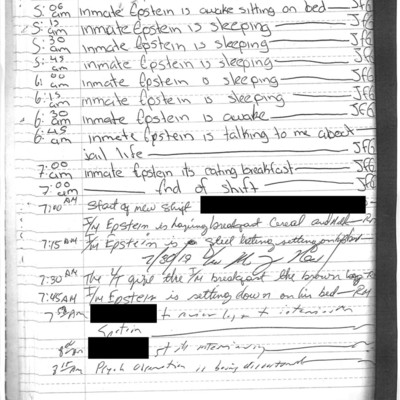 5:06 am inmate Epstein is awake sitting on bed JFG
5:15 am inmate Epstein is sleeping JFG
5:30 am inmate Epstein is sleeping JFG
5:45 am inmate Epstein is sleeping JFG
6:00 am inmate Epstein is sleeping JFG
6:15 am inmate Epstein is sleeping JFG
6:30 am inmate Epstein is awake JFG
6:45 am inmate Epstein is talking to me about
jail life JFG
7:00 am inmate Epstein its eating breakfast JFG
7:00 am End of shift JFG
7:00 AM Start of new shift
I/M Epstein is having breakfast Cereal and
7:15 AM I/M Epstein is still eating setting on
7/30/19
7:30 AM The give the I/M breakfast the brown bag
7:45 AM I/M Epstein is setting down on his bed RM
to review log & interview
Epstein
interviewing
8:15 AM Psych Observation is being discontinued